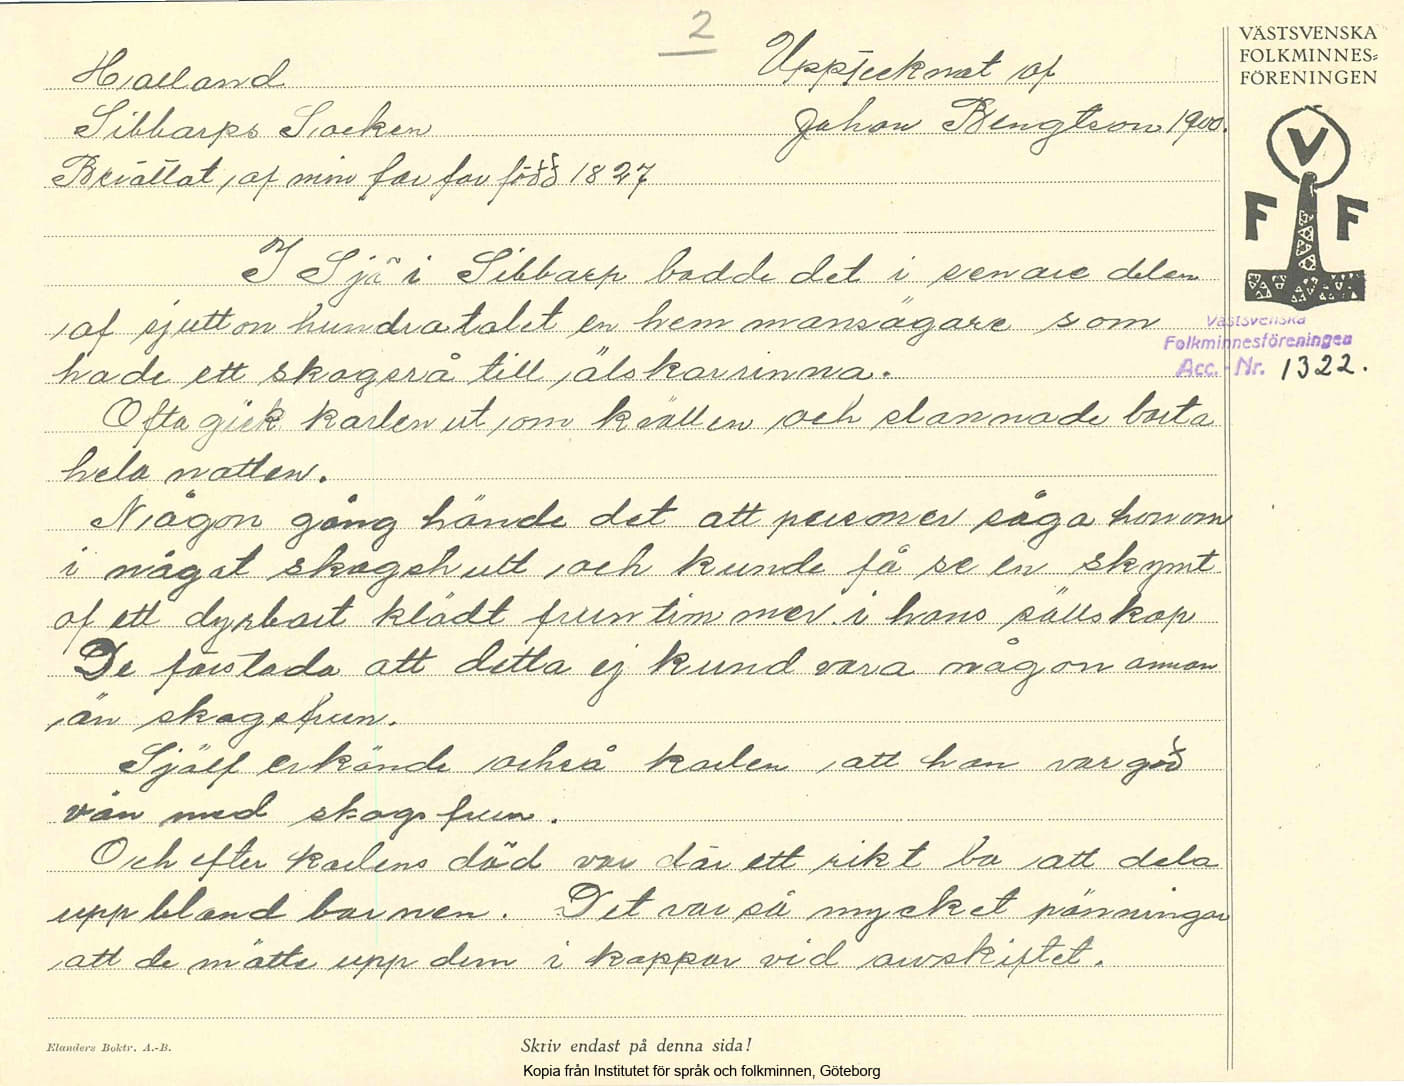 2
VÄSTSVENSKA
FOLKMINNES=
FÖRENINGEN
Halland
Uppteeknat af
Sibbarps Socken
Johan Bengtson 1900.
Berättat af min far far född 1827
V
F F
I Sjö i Sibbarp bodde det i senare delen
af sjutton hundratalet en hemmansägare som
Västsvenska
Folkminnesföreningen
Acc.-Nr. 1322.
hade ett skogsrå till älskarrinna.
Ofta gick karlen ut om kvällen och stannade borta
hela natten.
Någon gång hände det att personer såga honom
i något skogshult och kunde få se en skymt
af ett dyrbart klädt fruntimmer i hans sällskap
De förstoda att detta ej kund vara någon annan
än skogsfrun.
Själf erkände också karlen att han var god
vän med skogsfrun.
Och efter karlens död var där ett rikt bo att dela
upp bland barnen. Det var så mycket pänningar
att de mätte upp dem i kappar vid avskiftet.
Elanders Boktr. A.-B.
Skriv endast på denna sida!
Kopia från Institutet för språk och folkminnen, Göteborg